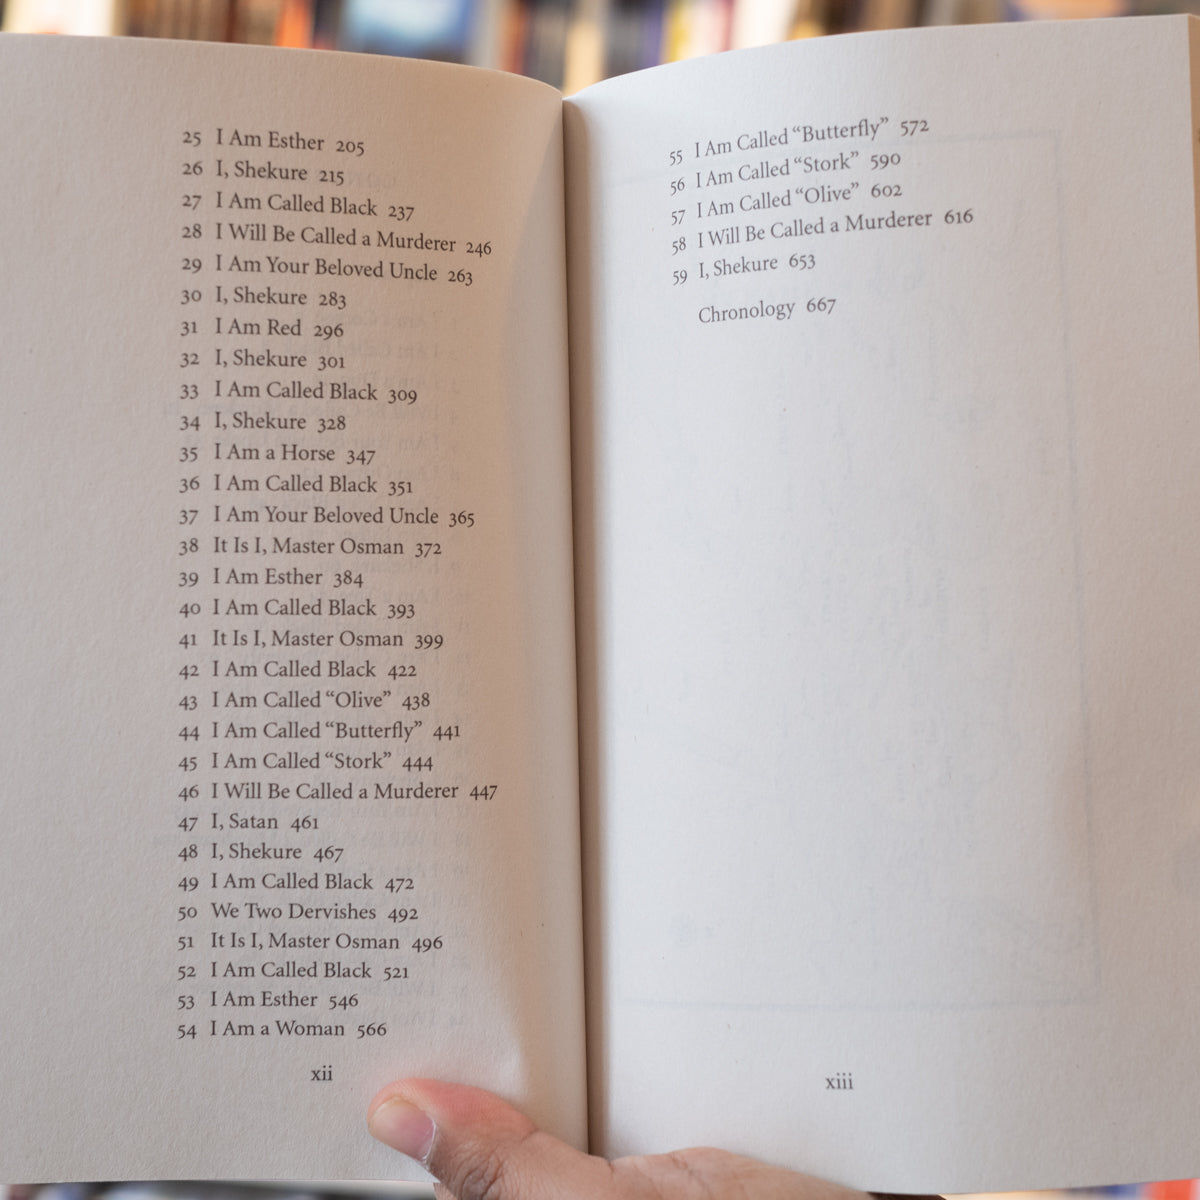 25 I Am Esther 205
26 I, Shekure 215
27 I Am Called Black 237
28 I Will Be Called a Murderer 246
29 I Am Your Beloved Uncle 263
30 I, Shekure 283
31 I Am Red 296
32 I, Shekure 301
33 I Am Called Black 309
34 I, Shekure 328
35 I Am a Horse 347
36 I Am Called Black 351
37 I Am Your Beloved Uncle 365
38 It Is I, Master Osman 372
39 I Am Esther 384
40 I Am Called Black 393
41 It Is I, Master Osman 399
42 I Am Called Black 422
43 I Am Called “Olive” 438
44 I Am Called “Butterfly” 441
45 I Am Called “Stork” 444
46 I Will Be Called a Murderer 447
47 I, Satan 461
48 I, Shekure 467
49 I Am Called Black 472
50 We Two Dervishes 492
51 It Is I, Master Osman 496
52 I Am Called Black 521
53 I Am Esther 546
54 I Am a Woman 566
xii
55 I Am Called “Butterfly” 572
56 I Am Called “Stork” 590
57 I Am Called “Olive” 602
58 I Will Be Called a Murderer 616
59 I, Shekure 653
Chronology 667
xiii